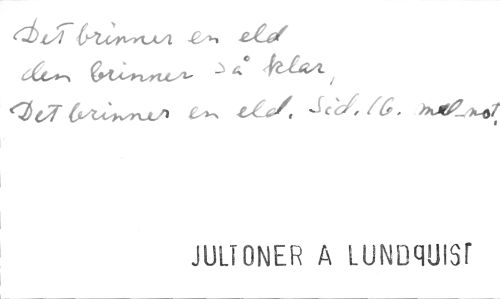 Det brinner en eld
den brinner så klar,
Det brinner en eld. Sid. 16. mel-not.
JULTONER A LUNDQUIST